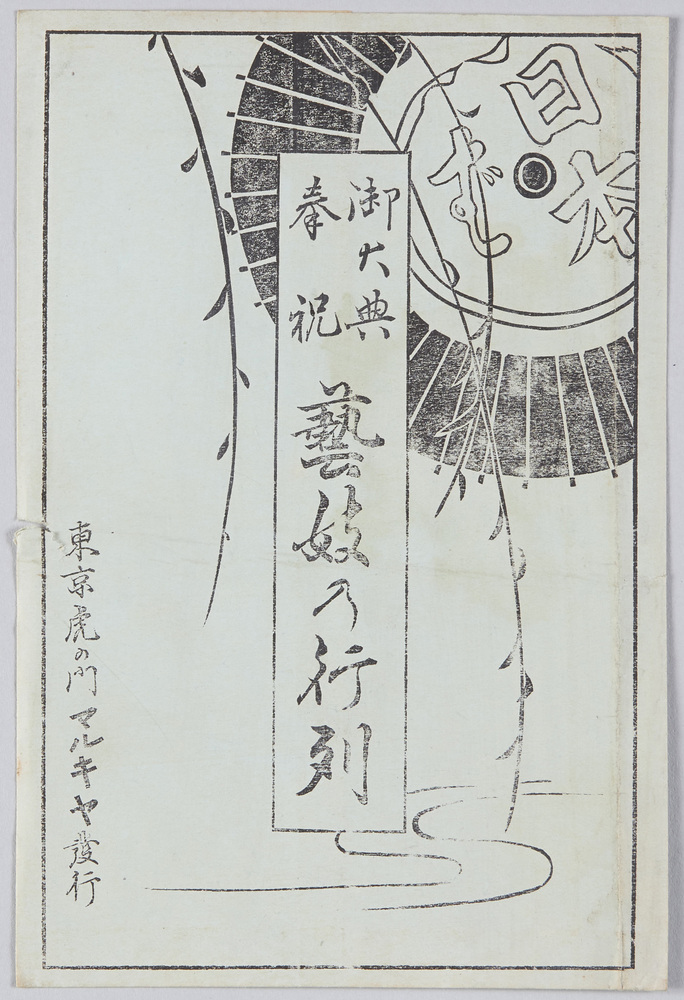 御大典
奉祝
藝妓の行列
東京虎の門マルキヤ發行
日本